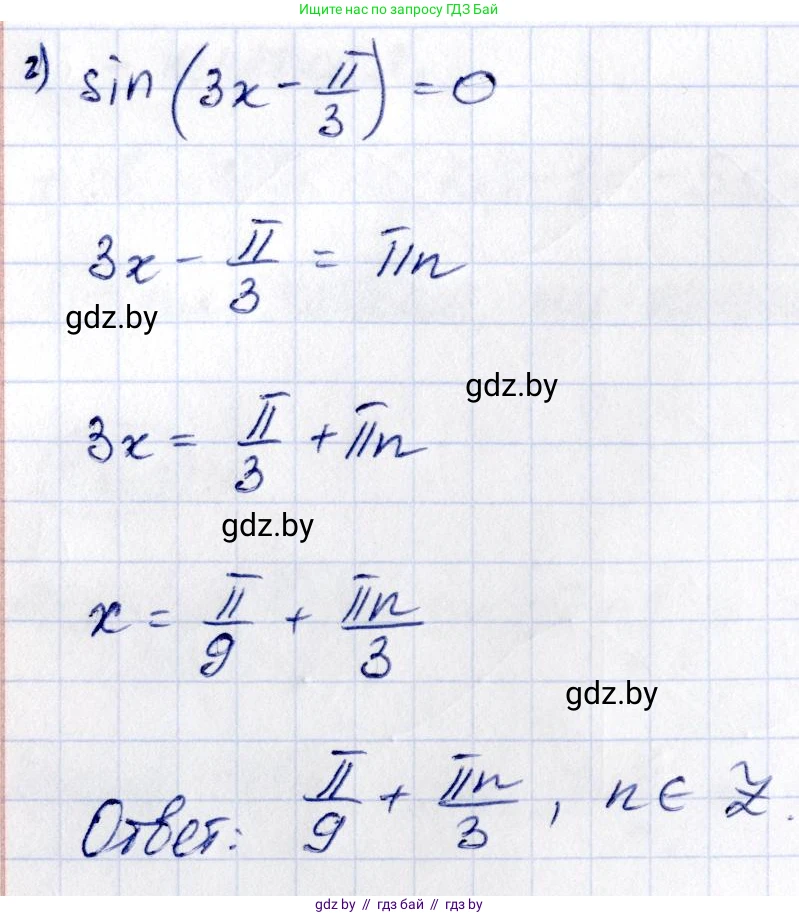 Ищите нас по запросу ГДЗ Бай
г) sin(3x - π/3) = 0
3x - π/3 = πn
gdz.by
gdz.by
3x = π/3 + πn
gdz.by
x = π/9 + πn/3
gdz.by
Ответ: π/9 + πn/3, n ∈ Z.
gdz.by // гдз бай // gdz.by